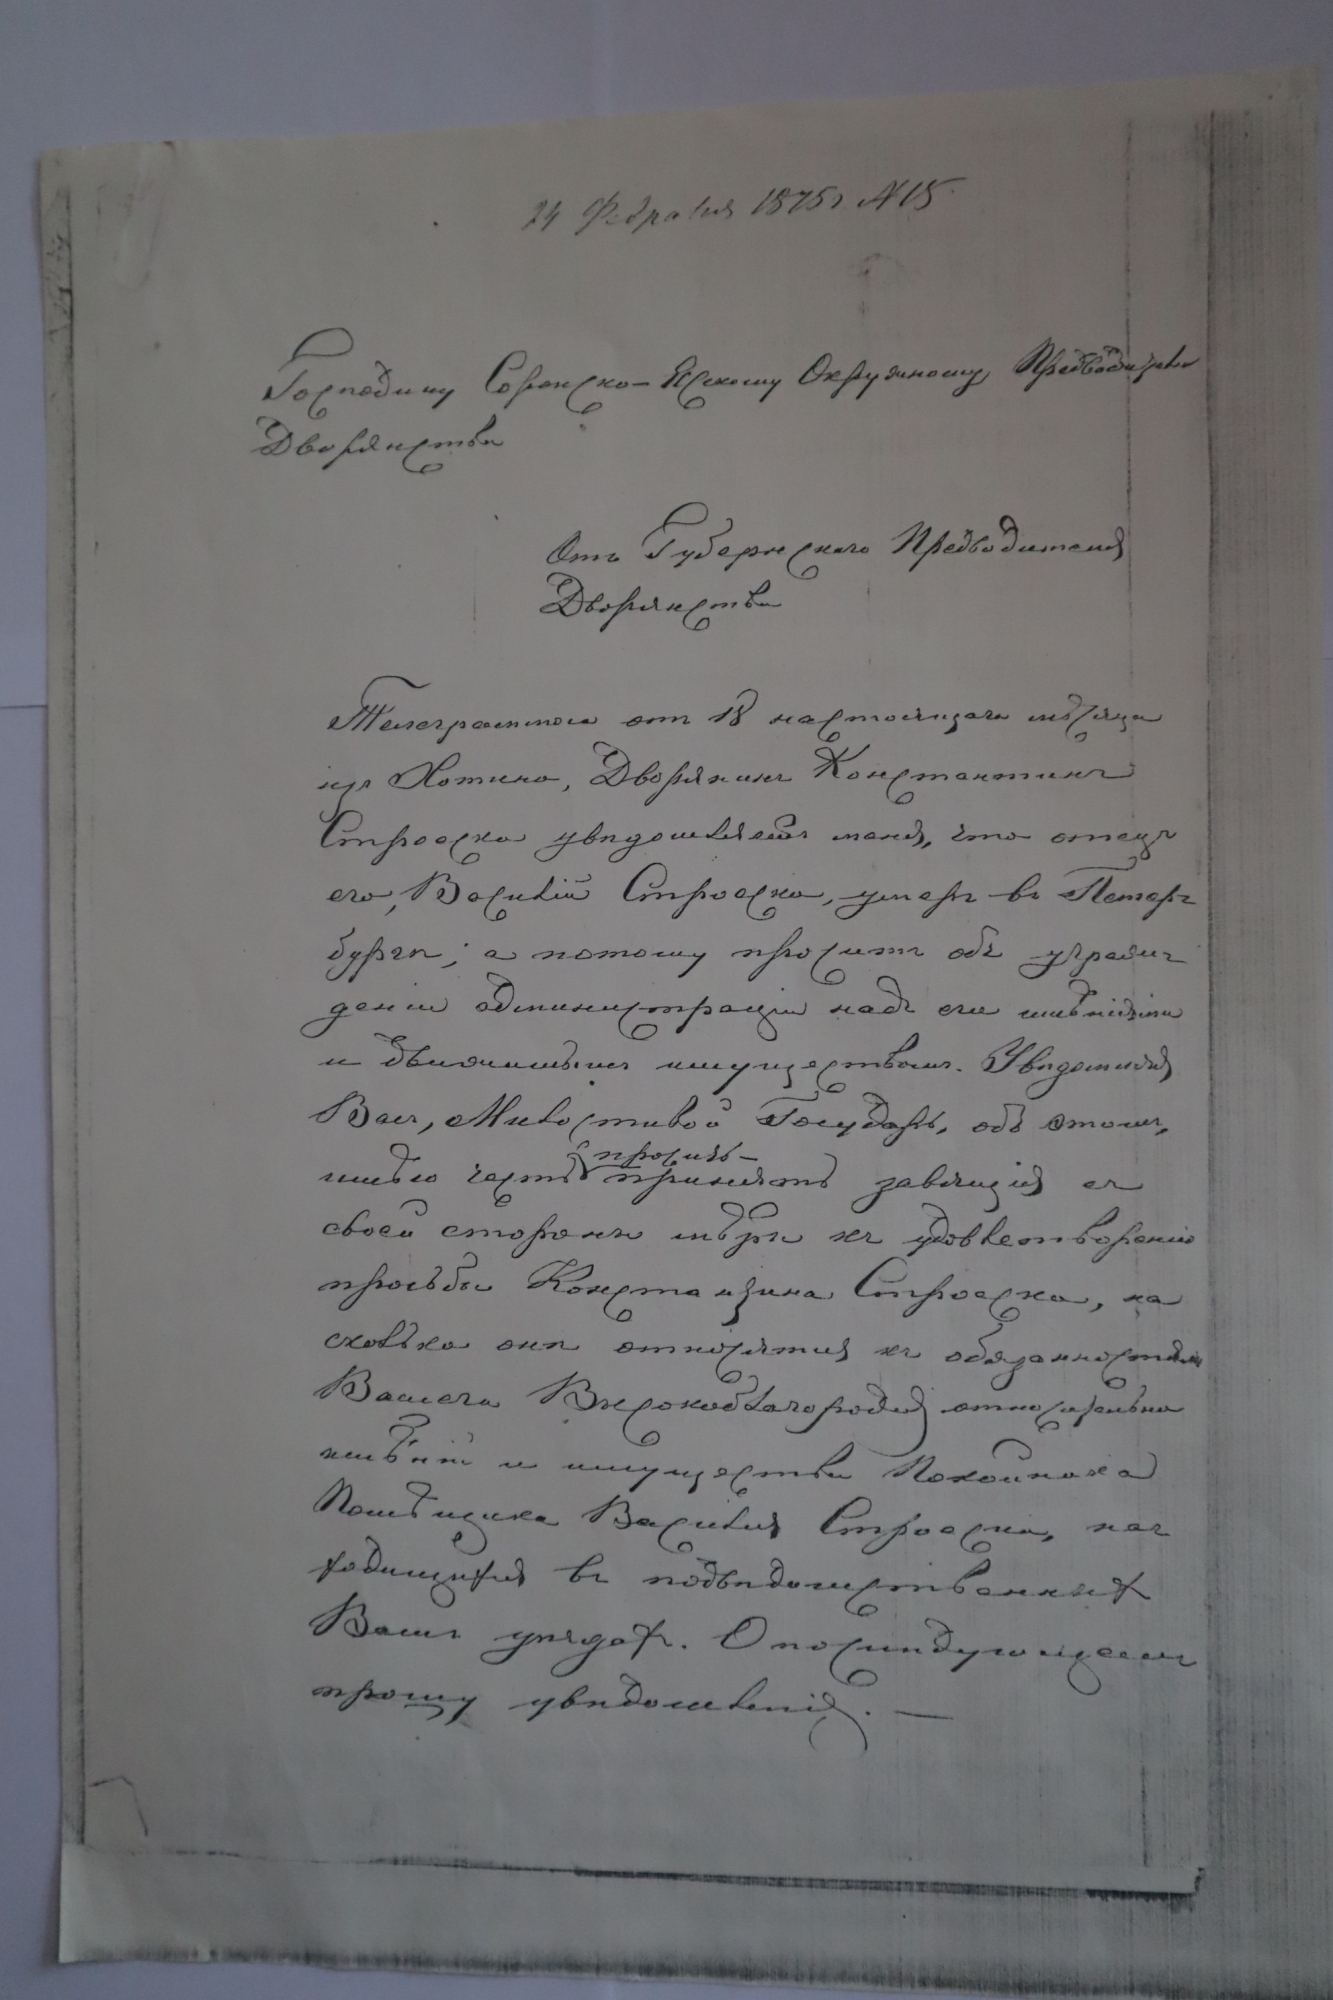 24 Февраля 1875 г. N 15.
Господину Сорокско-Ясскому Окружному Предводителю
Дворянства
Отъ Губернскаго Предводителя
Дворянства
Телеграммою отъ 18 настоящаго мѣсяца
изъ Хотина, Дворянинъ Константинъ
Строеско увѣдомляетъ меня, что отецъ
его, Василій Строеско, умеръ въ Петер
бургѣ; а потому проситъ объ учреж
деніи администраціи надъ его имѣніями
и движимымъ имуществомъ. Увѣдомляя
Васъ, Милостивой Государь, объ этомъ,
просить
имѣю честь принять зависящія съ
своей стороны мѣры къ удовлетворенію
просьбы Константина Строеско, на
сколько онѣ относятся къ обязанностямъ
Вашего Высокоблагородія относительно
имѣній и имущества Покойнаго
Помѣщика Василія Строеско, нах
ходящихся въ подвѣдомственныхъ
Вамъ уѣздахъ. О послѣдующемъ
прошу увѣдомленія. —